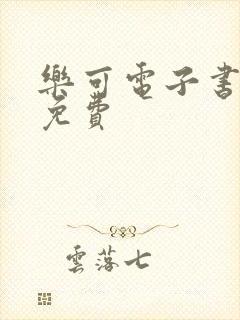 樂可電子書
免費
雲落七